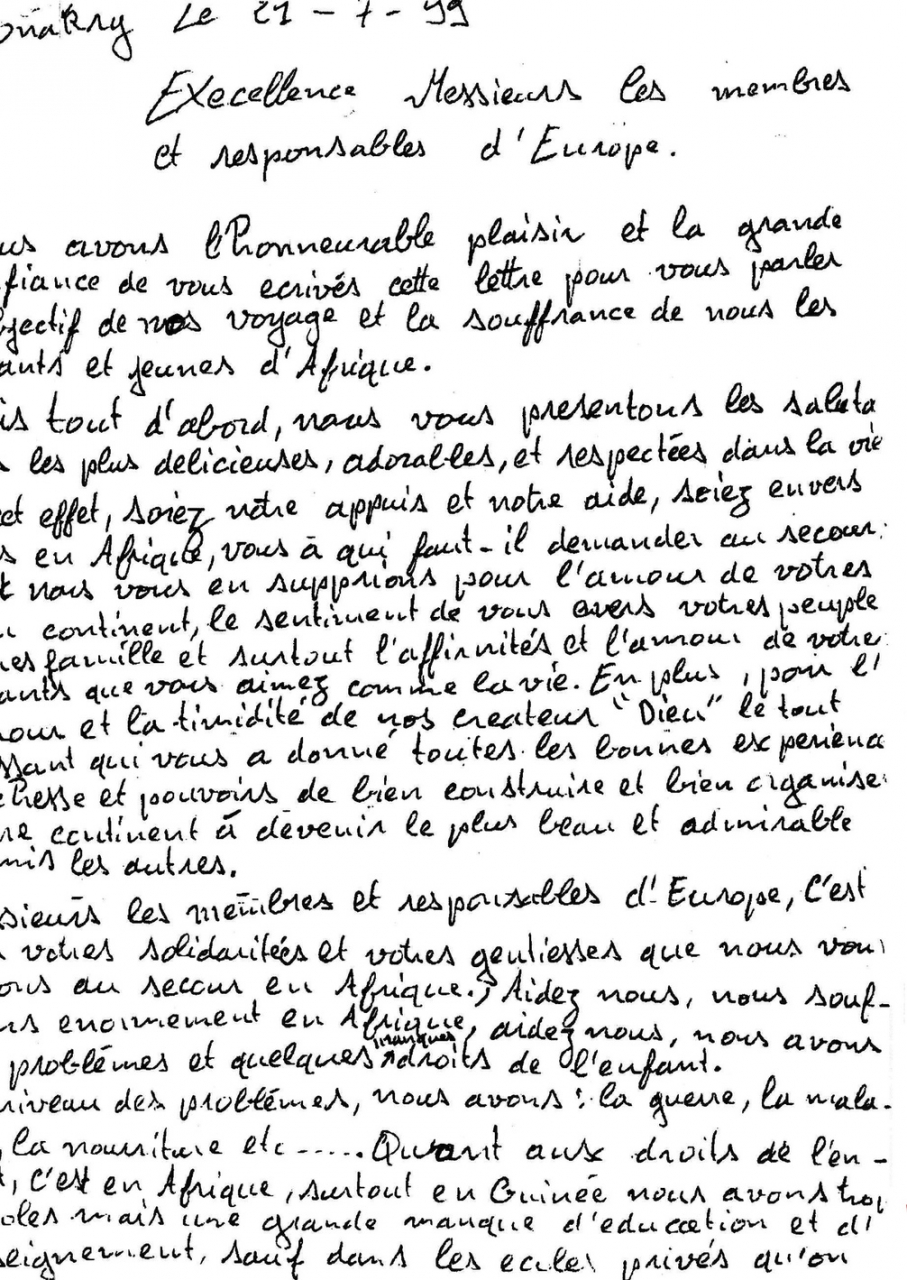 onakry Le 21 - 7 - 99
Exxecellence Messieurs les membres
et responsables d'Europe.
us avons l'honneurable plaisir et la grande
fiance de vous ecrivés cette lettre pour vous parler
bjectif de nos voyage et la souffrance de nous les
ants et jeunes d'Afrique.
is tout d'abord, nous vous presentons les saluta
les plus délicieuses, adorables, et respectées dans la vie
cet effet, soiez nôtre appuis et notre aide, soiez envers
s en Afrique, vous à qui faut-il demander au secour
t nous vous en supprions pour l'amour de votres
continent, le sentiment de vous avers votres peuple
es famille et surtout l'affinités et l'amour de votre
ants que vous aimez comme la vie. En plus, pour l'
our et la timidité de nos createur "Dieu" le tout
ssant qui vous a donné toutes les bonnes experienc
chesse et pouvoirs de bien construire et bien organise
re continent à devenir le plus beau et admirable
mis les autres.
sieurs les membres et responsables d'Europe, C'est
votres solidaritées et votres gentiesses que nous vou
ons au secour en Afrique. Aidez nous, nous souf-
ns enormement en Afrique, aidez nous, nous avons
problèmes et quelques manques droits de l'enfant.
niveau des problèmes, nous avons: la guerre, la mala-
, la nourriture etc ..... Quant aux droits de l'en-
t, C'est en Afrique, surtout en Guinée nous avons trop
oles mais une grande manque d'education et d'
seignement, sauf dans les ecoles privés qu'on